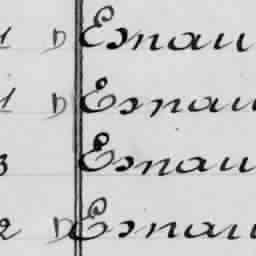 1 D Esnau
1 D Esnau
3 Esnau
2 D Esnau